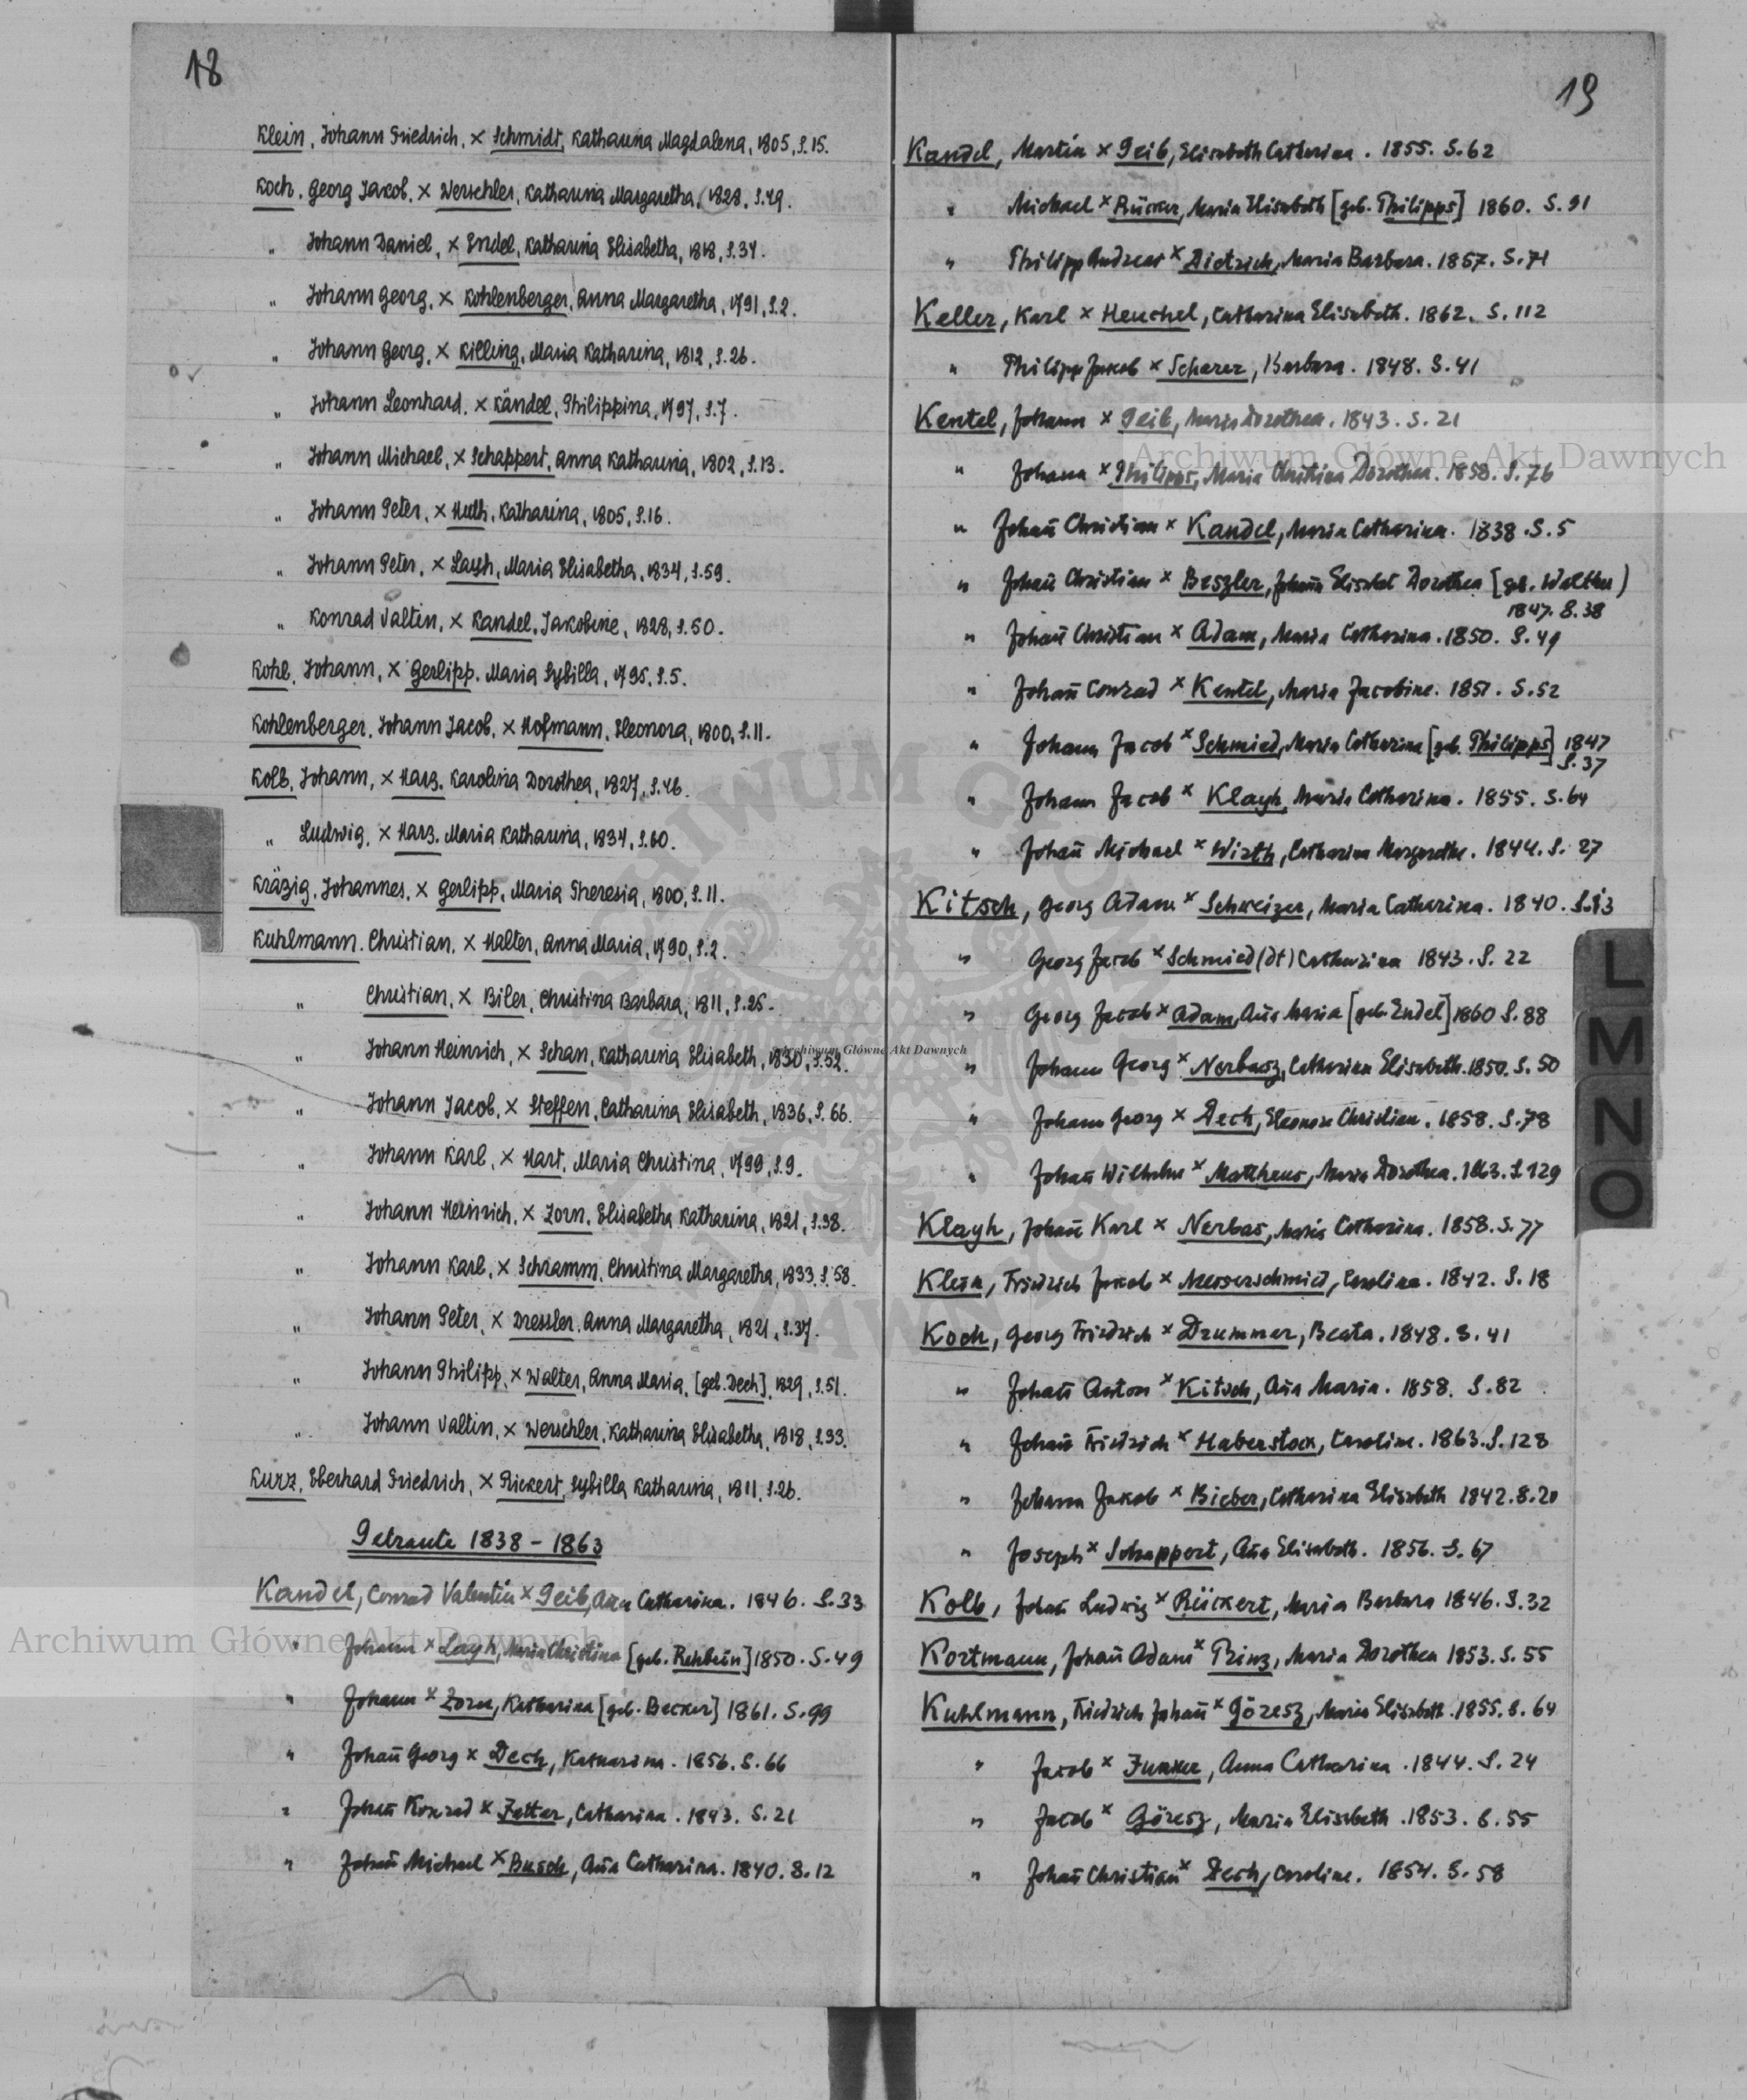 18
Klein, Johann Friedrich, × Schmidt, Katharina Magdalena, 1805, S.15.
Koch, Georg Jakob, × Werschler, Katharina Margaretha, 1828, S.49.
„ Johann Daniel, × Endel, Katharina Elisabetha, 1818, S.34.
„ Johann Georg, × Kohlenberger, Anna Margaretha, 1791, S.2.
„ Johann Georg, × Killing, Maria Katharina, 1812, S.26.
„ Johann Leonhard, × Kändel, Philippina, 1797, S.7.
„ Johann Michael, × Schappert, Anna Katharina, 1802, S.13.
„ Johann Peter, × Huth, Katharina, 1805, S.16.
„ Johann Peter, × Layh, Maria Elisabetha, 1834, S.59.
„ Konrad Valtin, × Kandel, Jakobine, 1828, S.50.
Kohl, Johann, × Gerlipp, Maria Sybilla, 1795, S.5.
Kohlenberger, Johann Jacob, × Hofmann, Eleonora, 1800, S.11.
Kolb, Johann, × Harz, Karolina Dorothea, 1827, S.46.
„ Ludwig, × Harz, Maria Katharina, 1834, S.60.
Kräzig, Johannes, × Gerlipp, Maria Theresia, 1800, S.11.
Kuhlmann, Christian, × Halter, Anna Maria, 1790, S.2.
„ Christian, × Biler, Christina Barbara, 1811, S.25.
„ Johann Heinrich, × Schan, Katharina Elisabeth, 1830, S.52.
„ Johann Jacob, × Steffen, Catharina Elisabeth, 1836, S.66.
„ Johann Karl, × Hart, Maria Christina, 1799, S.9.
„ Johann Heinrich, × Zorn, Elisabetha Katharina, 1821, S.38.
„ Johann Karl, × Schramm, Christina Margaretha, 1833, S.58.
„ Johann Peter, × Dressler, Anna Margaretha, 1821, S.37.
„ Johann Philipp, × Walter, Anna Maria, [geb. Dech], 1829, S.51.
„ Johann Valtin, × Werschler, Katharina Elisabetha, 1818, S.33.
Kurz, Eberhard Friedrich, × Rickert, Sybilla Katharina, 1811, S.26.
Getraute 1838 - 1863
Kandel, Conrad Valentin × Geib, Anna Catharina. 1846. S.33
" Johann × Layh, Maria Christina [geb. Rehbein] 1850. S.49
" Johann × Zorn, Katharina [geb. Becker] 1861. S.99
" Johañ Georg × Dech, Katharina. 1856. S.66
" Johañ Konrad × Fetter, Catharina. 1843. S.21
" Johañ Michael × Busch, Aña Catharina. 1840. S.12
19
Kandel, Martin × Geib, Elisabeth Catharina. 1855. S.62
" Michael × Rücker, Maria Elisabeth [geb. Philipps] 1860. S.91
" Philipp Andreas × Dietrich, Maria Barbara. 1857. S.71
Keller, Karl × Heuchel, Catharina Elisabeth. 1862. S.112
" Philipp Jakob × Scharer, Barbara. 1848. S.41
Kentel, Johann × Geib, Maria Dorothea. 1843. S.21
" Johann × Philipps, Maria Christina Dorothea. 1858. S.76
" Johañ Christian × Kandel, Maria Catharina. 1838. S.5
" Johañ Christian × Beszler, Johaña Elisabet Dorothea [geb. Walther)
1847. S.38
" Johañ Christian × Adam, Maria Catharina. 1850. S.49
" Johañ Conrad × Kentel, Maria Jacobine. 1851. S.52
" Johann Jacob × Schmied, Maria Catharina [geb. Philipps] 1847
S.37
" Johann Jacob × Klayh, Maria Catharina. 1855. S.64
" Johañ Michael × Wirth, Catharina Margarethe. 1844. S.27
Kitsch, Georg Adam × Schweizer, Maria Catharina. 1840. S.13
" Georg Jacob × Schmied (dt) Catharina 1843. S.22
" Georg Jacob × Adam, Aña Maria [geb. Endel] 1860 S.88
" Johann Georg × Nerbasz, Catharina Elisabeth. 1850. S.50
" Johann Georg × Dech, Eleonore Christian. 1858. S.78
" Johañ Wilhelm × Mattheus, Maria Dorothea. 1863. S.129
Klayh, Johañ Karl × Nerbas, Maria Catharina. 1858. S.77
Klein, Friedrich Jakob × Messerschmied, Carolina. 1842. S.18
Koch, Georg Friedrich × Drummer, Beata. 1848. S.41
" Johañ Anton × Kitsch, Aña Maria. 1858. S.82
" Johañ Friedrich × Haberstock, Caroline. 1863. S.128
" Johann Jakob × Bieber, Catharina Elisabeth 1842. S.20
" Joseph × Schappert, Aña Elisabeth. 1856. S.67
Kolb, Johañ Ludwig × Rückert, Maria Barbara 1846. S.32
Kortmann, Johañ Adam × Prinz, Maria Dorothea 1853. S.55
Kuhlmann, Friedrich Johañ × Göresz, Maria Elisabeth. 1855. S.64
" Jacob × Junker, Anna Catharina. 1844. S.24
" Jacob × Göresz, Maria Elisabeth. 1853. S.55
" Johañ Christian × Dech, Caroline. 1854. S.58
L
M
N
O
Archiwum Główne Akt Dawnych
Archiwum Główne Akt Dawnych
Archiwum Główne Akt Dawnych